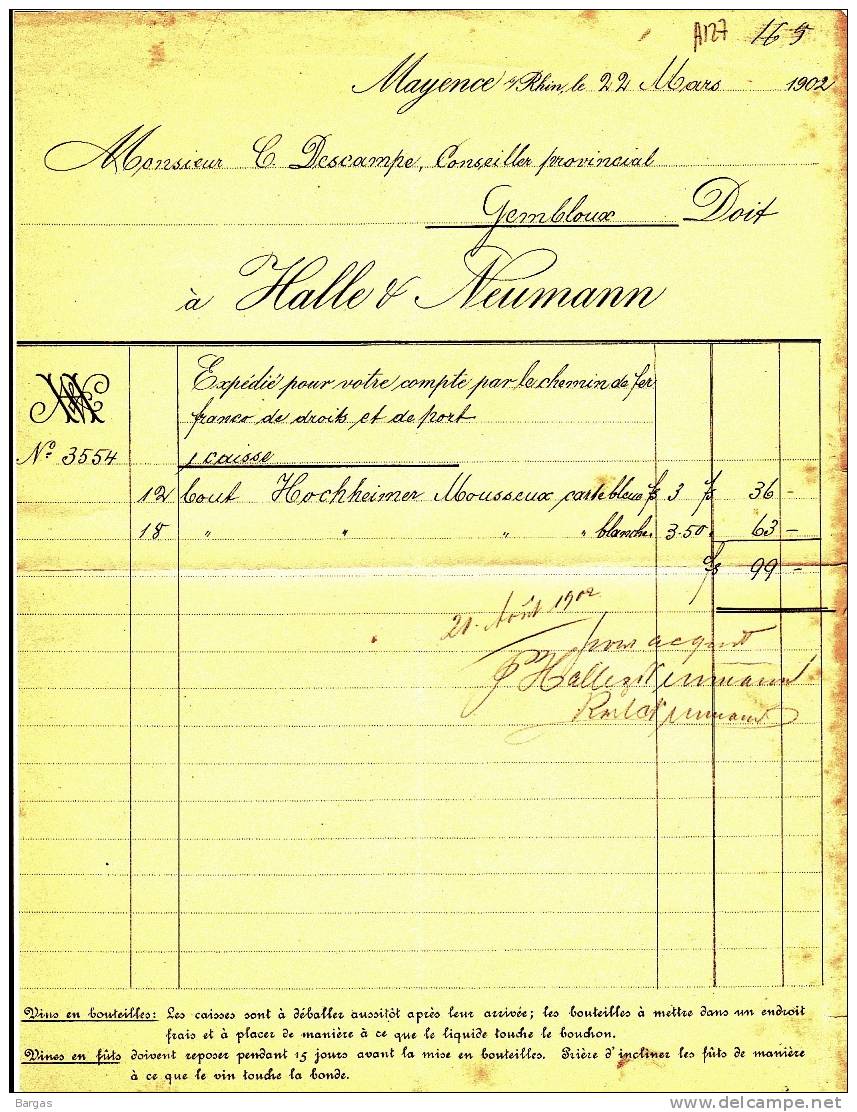 A127 165
Mayence s/Rhin, le 22 Mars 1902
Monsieur C. Descampe, Conseiller provincial
Gembloux Doit
à Halle & Neumann
Expédié pour votre compte par le chemin de fer
franco de droits et de port
No. 3554 1 caisse
12 bout Hochheimer Mousseux carte bleue fs 3 fs 36 -
18 " " " " blanche 3.50 63 -
fs 99 -
21 Août 1902
pour acquit
p Halle & Neumann
Neumann
Vins en bouteilles: Les caisses sont à déballer aussitôt après leur arrivée; les bouteilles à mettre dans un endroit
frais et à placer de manière à ce que le liquide touche le bouchon.
Vines en fûts doivent reposer pendant 15 jours avant la mise en bouteilles. Prière d'incliner les fûts de manière
à ce que le vin touche la bonde.
Bargas
delcampe.net